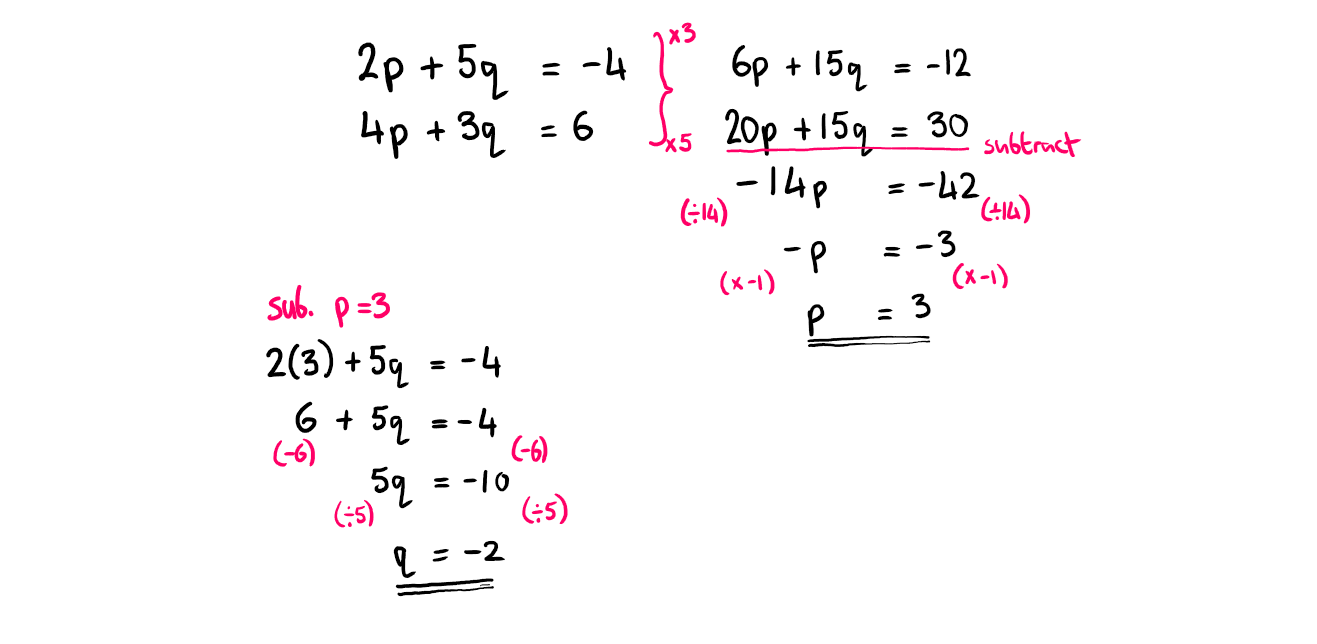 2p + 5q = -4 } x3 6p + 15q = -12
4p + 3q = 6 x5 20p + 15q = 30 subtract
-14p = -42
(÷14) (÷14)
-p = -3
(x-1) (x-1)
p = 3
sub. p=3
2(3) + 5q = -4
6 + 5q = -4
(-6) (-6)
5q = -10
(÷5) (÷5)
q = -2